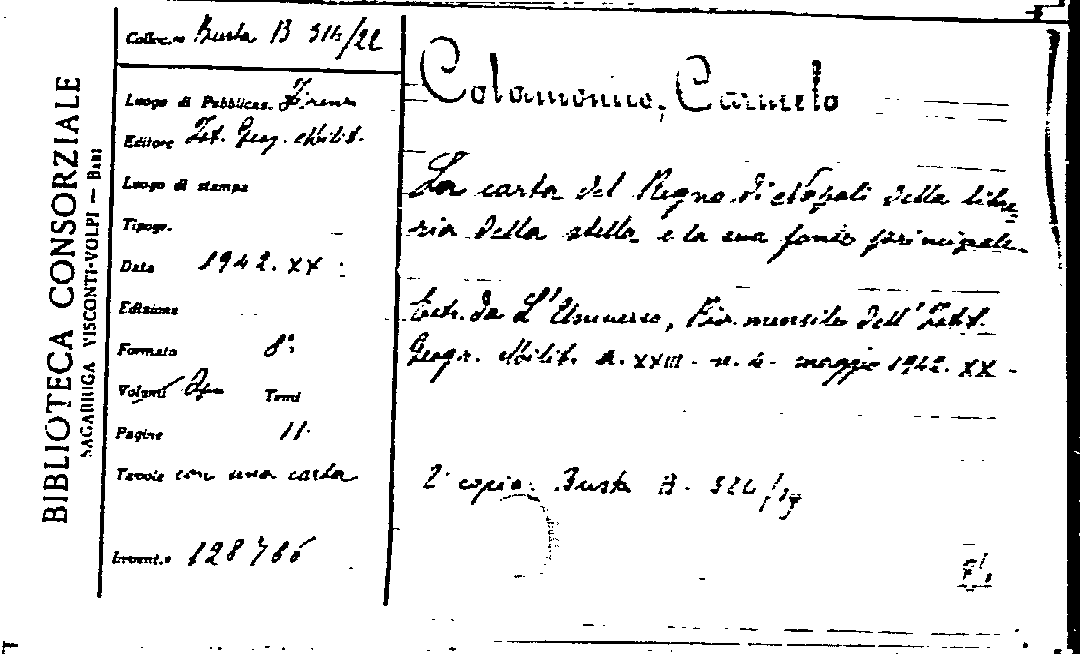 BIBLIOTECA CONSORZIALE
SAGARRIGA VISCONTI-VOLPI — BARI
Colloc.ne Busta B 316/22
Luogo di Pubblicaz. Firenze
Editore Ist. Geog. Milit.
Luogo di stampa
Tipogr.
Data 1942. XX
Edizione
Formato 8°
Volumi Op. Tomi
Pagine 11
Tavole con una carta
Invent.o 128766
Colamonico, Carmelo
La carta del Regno di Napoli della libre
ria della stella e la sua fonte principale
Estr. da L'Universo, Riv. mensile dell'Istit.
Geogr. Milit. a. XXIII - n. 4 - maggio 1942. XX -
2ª copia: Busta B - 324/